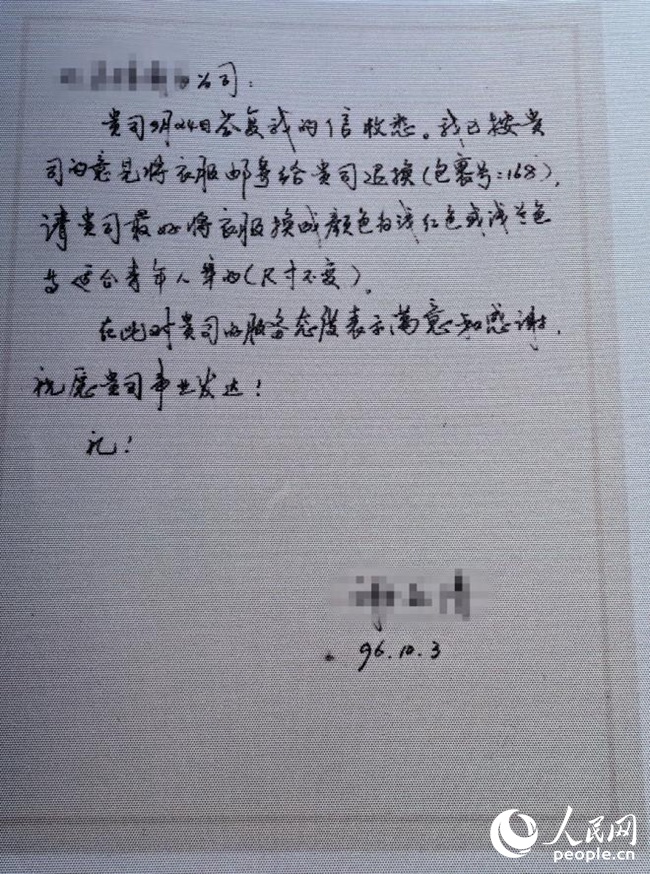 公司:
贵司9月24日答复我的信收悉。我已按贵
司的意见将衣服邮寄给贵司退换(包裹号:168),
请贵司最好将衣服换成颜色为浅红色或浅兰色
等适合青年人穿的(尺寸不变)。
在此对贵司的服务态度表示满意和感谢,
祝愿贵司事业发达!
礼!
96.10.3
人民网
people.cn